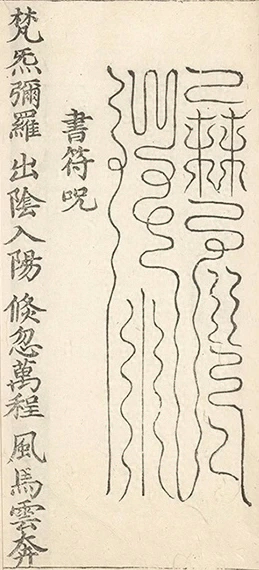 書符呪
梵炁彌羅 出陰入陽 倐忽萬程 風馬雲奔